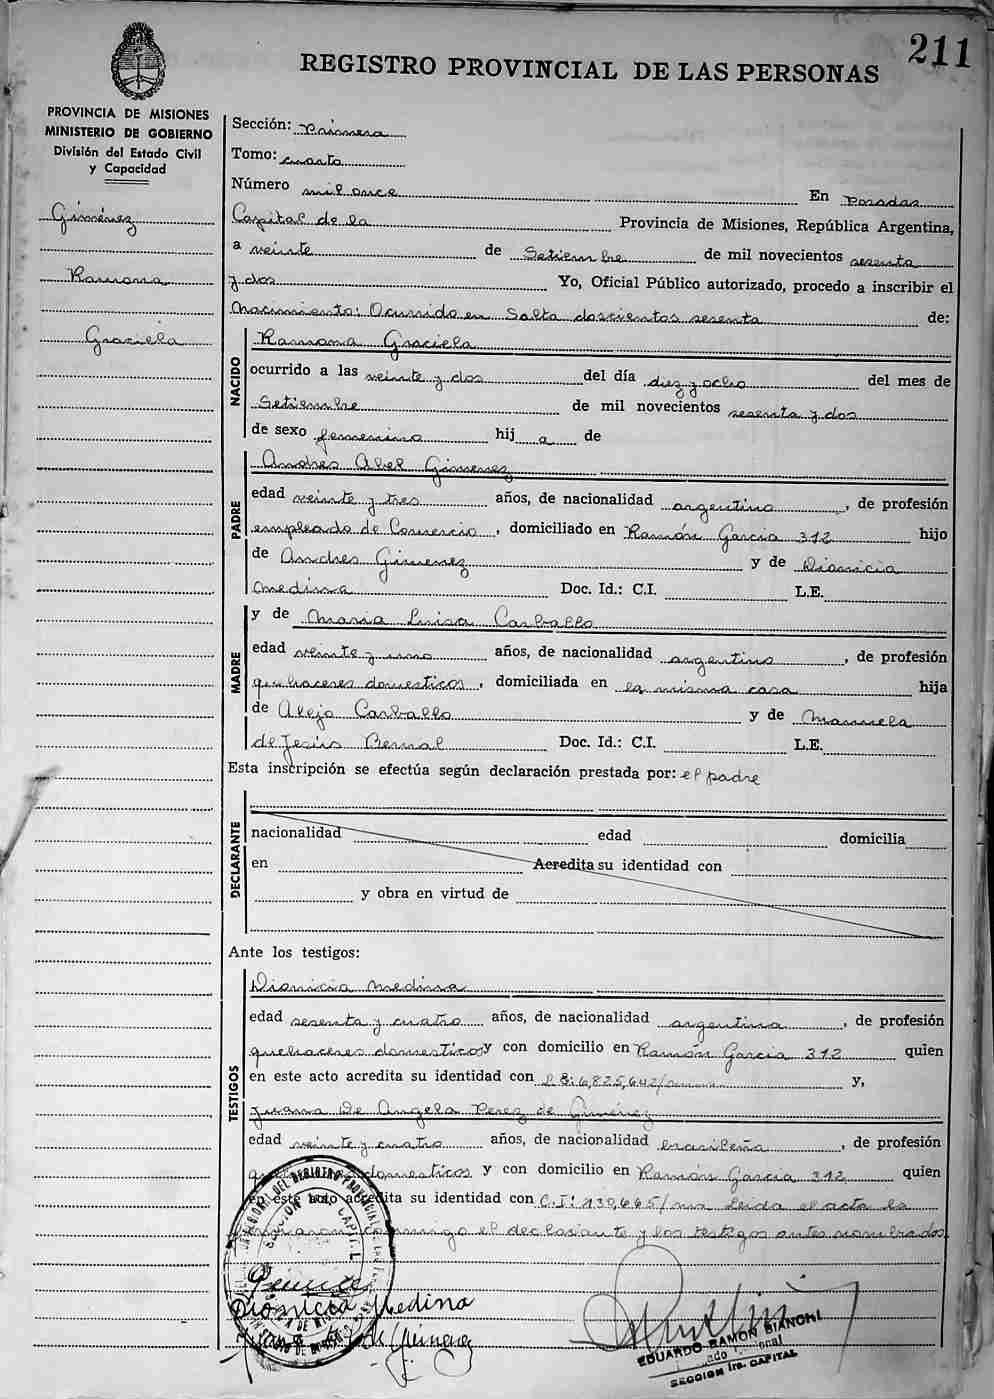 211
REGISTRO PROVINCIAL DE LAS PERSONAS
PROVINCIA DE MISIONES
MINISTERIO DE GOBIERNO
División del Estado Civil
y Capacidad
Giménez
Ramona
Graciela
Sección: Primera
Tomo: cuarto
Número mil once En Posadas
Capital de la Provincia de Misiones, República Argentina,
a veinte de Setiembre de mil novecientos sesenta
y dos Yo, Oficial Público autorizado, procedo a inscribir el
Nacimiento: Ocurrido en Salta doscientos sesenta de:
NACIDO
Ramona Graciela
ocurrido a las veinte y dos del día diez y ocho del mes de
Setiembre de mil novecientos sesenta y dos
de sexo femenino hij a de
PADRE
Andrés Abel Gimenez
edad veinte y tres años, de nacionalidad argentino, de profesión
empleado de Comercio, domiciliado en Ramón Garcia 312 hijo
de Andres Gimenez y de Dionicia
Medina Doc. Id.: C.I. L.E.
MADRE
y de Maria Luisa Carballo
edad veinte y uno años, de nacionalidad argentino, de profesión
quehaceres domesticos, domiciliada en la misma casa hija
de Alejo Carballo y de Manuela
de Jesús Bernal Doc. Id.: C.I. L.E.
Esta inscripción se efectúa según declaración prestada por: el padre
DECLARANTE
nacionalidad edad domicilia
en Acredita su identidad con
y obra en virtud de
Ante los testigos:
TESTIGOS
Dionicia Medina
edad sesenta y cuatro años, de nacionalidad argentina, de profesión
quehaceres domesticos y con domicilio en Ramón Garcia 312 quien
en este acto acredita su identidad con 6,825,642 y,
Juana De Angela Perez de Giménez
edad veinte y cuatro años, de nacionalidad brasileña, de profesión
domesticos y con domicilio en Ramón Garcia 312 quien
en este acto acredita su identidad con C.I: 130,665/ Leida el acta la
conmigo el declarante y los testigos antes nombrados
Dionicia Medina
de Gimenez
EDUARDO RAMON BIANCHI
SECCION 1ra. CAPITAL